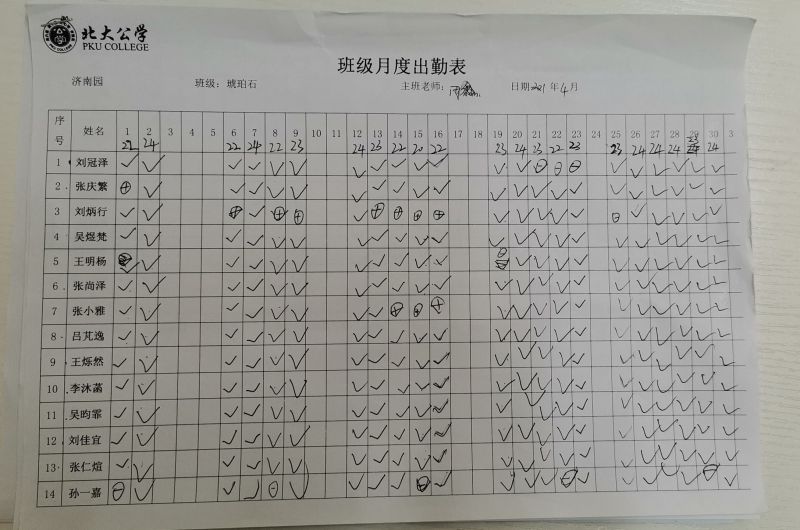 北大公学
PKU COLLEGE
班级月度出勤表
济南园 班级：琥珀石 主班老师： 日期 2021 年 4 月
序号 姓名 1 2 3 4 5 6 7 8 9 10 11 12 13 14 15 16 17 18 19 20 21 22 23 24 25 26 27 28 29 30 3
22 24 22 24 22 23 24 23 22 20 22 23 24 23 22 23 23 24 24 24 24 24
1 刘冠泽 ✓ ✓ ✓ ✓ ✓ ✓ ✓ ✓ ✓ ✓ ✓ ✓ ✓ ⊖ ⊖ ⊖ ✓ ✓ ✓ ✓ ✓ ✓
2 张庆繁 ⊕ ✓ ✓ ✓ ✓ ✓ ✓ ✓ ✓ ✓ ✓ ✓ ✓ ✓ ✓ ✓ ✓ ✓ ✓ ✓ ✓ ✓
3 刘炳行 ✓ ✓ ⊕ ✓ ⊕ ⊕ ✓ ⊕ ⊕ ⊕ ⊕ ✓ ✓ ✓ ✓ ✓ ⊖ ✓ ✓ ✓ ✓ ✓
4 吴煜梵 ✓ ✓ ✓ ✓ ✓ ✓ ✓ ✓ ✓ ✓ ✓ ✓ ✓ ✓ ✓ ✓ ✓ ✓ ✓ ✓ ✓ ✓
5 王明杨
6 张尚泽 ✓ ✓ ✓ ✓ ✓ ✓ ✓ ✓ ✓ ✓ ✓ ✓ ✓ ✓ ✓ ✓ ✓ ✓ ✓ ✓ ✓ ✓
7 张小雅 ✓ ✓ ✓ ✓ ✓ ✓ ✓ ✓ ⊕ ⊕ ⊕ ✓ ✓ ✓ ✓ ✓ ✓ ✓ ✓ ✓ ✓ ✓
8 吕芃逸 ✓ ✓ ✓ ✓ ✓ ✓ ✓ ✓ ✓ ✓ ✓ ✓ ✓ ✓ ✓ ✓ ✓ ✓ ✓ ✓ ✓ ✓
9 王烁然 ✓ ✓ ✓ ✓ ✓ ✓ ✓ ✓ ✓ ✓ ✓ ✓ ✓ ✓ ✓ ✓ ✓ ✓ ✓ ✓ ✓ ✓
10 李沐菡 ✓ ✓ ✓ ✓ ✓ ✓ ✓ ✓ ✓ ✓ ✓ ✓ ✓ ✓ ✓ ✓ ✓ ✓ ✓ ✓ ✓ ✓
11 吴昀霏 ✓ ✓ ✓ ✓ ✓ ✓ ✓ ✓ ✓ ✓ ✓ ✓ ✓ ✓ ✓ ✓ ✓ ✓ ✓ ✓ ✓ ✓
12 刘佳宜 ✓ ✓ ✓ ✓ ✓ ✓ ✓ ✓ ✓ ✓ ✓ ✓ ✓ ✓ ✓ ✓ ✓ ✓ ✓ ✓ ✓ ✓
13 张仁煊 ✓ ✓ ✓ ✓ ✓ ✓ ✓ ✓ ✓ ✓ ✓ ✓ ✓ ✓ ✓ ✓ ✓ ✓ ✓ ✓ ✓ ✓
14 孙一嘉 ⊖ ✓ ✓ ✓ ⊖ ✓ ✓ ✓ ✓ ⊖ ✓ ✓ ✓ ✓ ⊖ ✓ ✓ ✓ ✓ ✓ ✓ ⊖